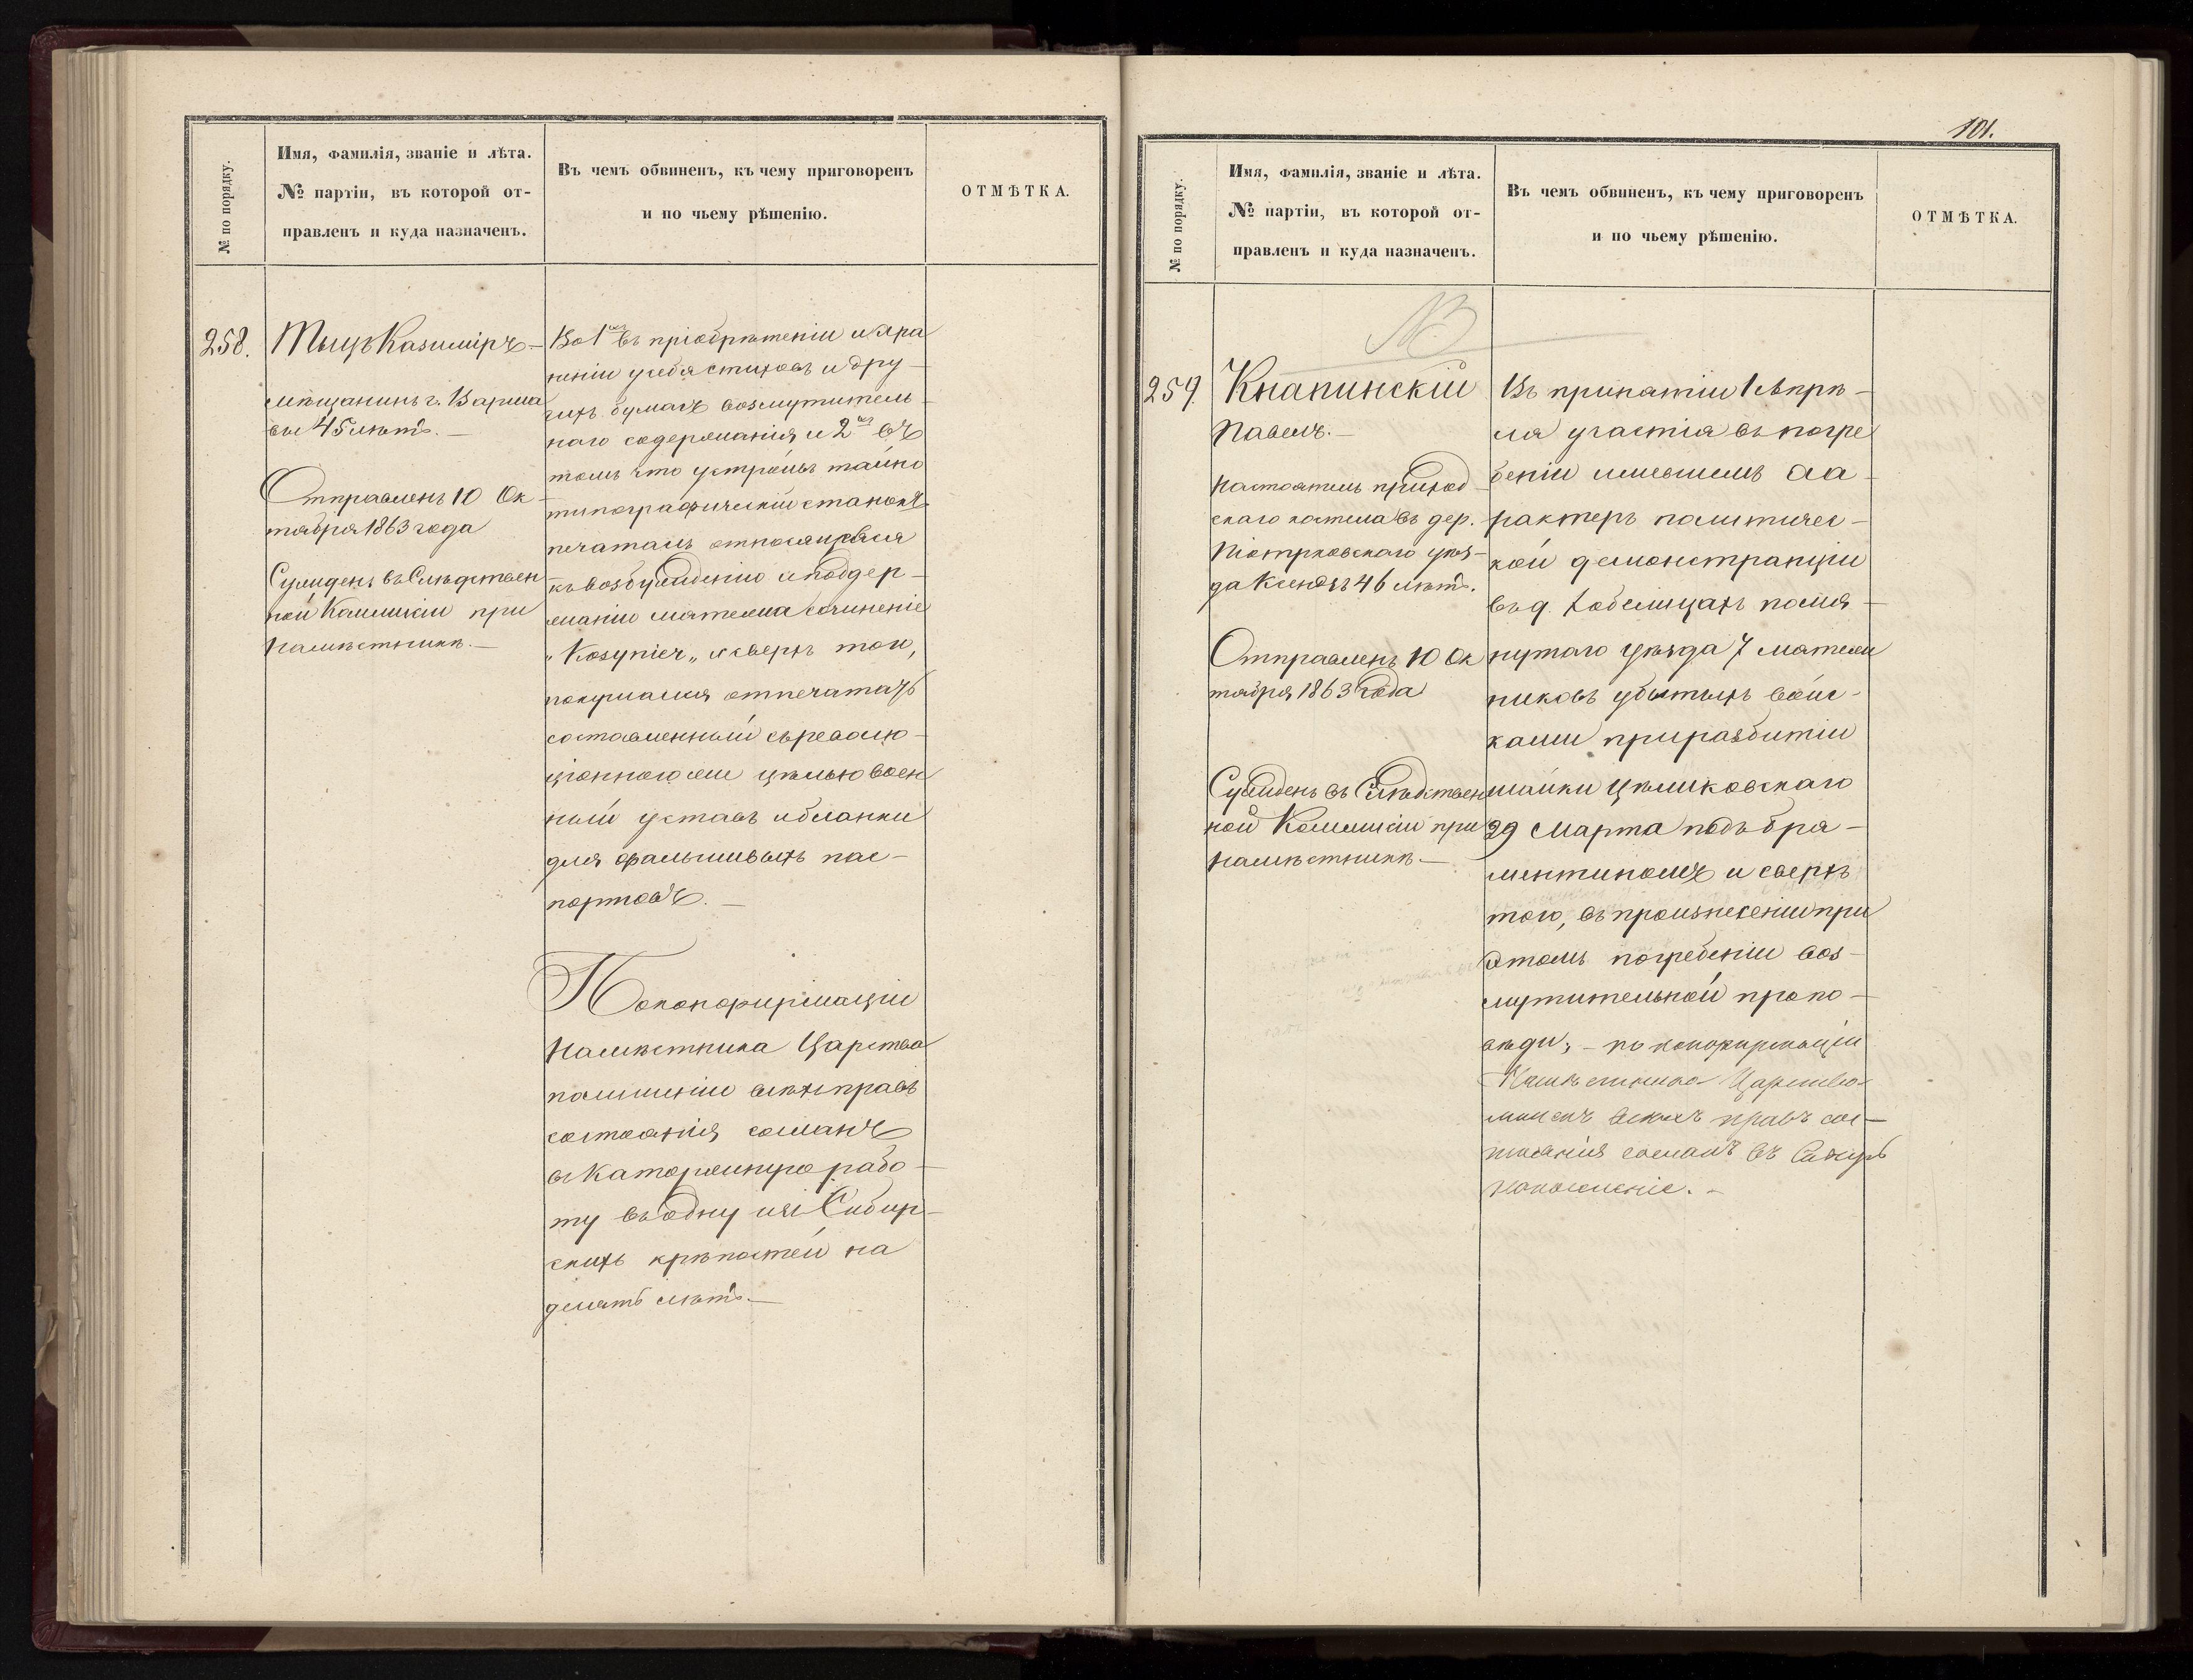 № по порядку.
Имя, фамилія, званіе и лѣта.
№ партіи, въ которой от-
правленъ и куда назначенъ.
Въ чемъ обвиненъ, къ чему приговоренъ
и по чьему рѣшенію.
ОТМѢТКА.
258.
Тыцъ Казиміръ —
мѣщанинъ г. Варша
вы 45 лѣтъ. —
Отправленъ 10 Ок-
тября 1863 года
Сужденъ въ Слѣдствен
ной Коммисіи при
Намѣстникѣ. —
Во 1хъ въ пріобрѣтеніи и хра
неніи у себя стиховъ и дру-
гихъ бумагъ возмутитель-
наго содержанія и 2хъ въ
томъ что устроивъ тайно
типографическій станокъ
печаталъ относящіяся
къ возбужденію и поддер-
жанію мятежа сочиненіе
„Kosynier„ и сверхъ того,
покушался отпечатать
составленный съ револю-
ціонною цѣлью воен
ный уставъ и бланки
для фальшивыхъ пас-
портовъ. —
По конфирмаціи
Намѣстника Царства
по лишеніи всѣхъ правъ
состоянія сосланъ
въ каторжную рабо-
ту въ одну изъ Сибир-
скихъ крѣпостей на
десять лѣтъ. —
101.
№ по порядку.
Имя, фамилія, званіе и лѣта.
№ партіи, въ которой от-
правленъ и куда назначенъ.
Въ чемъ обвиненъ, къ чему приговоренъ
и по чьему рѣшенію.
ОТМѢТКА.
NB
259.
Кнапинскій
Павелъ. —
Настоятель приход-
скаго костела въ дер.
Піотрковскаго уѣз-
да Ксендзъ 46 лѣтъ.
Отправленъ 10 Ок
тября 1863 года
Сужденъ въ Слѣдствен
ной Коммисіи при
Намѣстникѣ. —
Въ принятіи 1 Апрѣ-
ля участія въ погре
беніи имевшемъ ха-
рактеръ политичес-
кой демонстраціи
въ д. помя-
нутаго уѣзда 7 мятеж
никовъ убитыхъ войс-
ками при разбитіи
шайки Цѣшковскаго
29 Марта подъ Бра-
и сверхъ
того, въ произнесеніи при
этомъ погребеніи воз-
мутительной пропо-
вѣди; — по конфирмаціи
Намѣстника Царства
лишенъ всѣхъ правъ сос-
тоянія сосланъ въ Сибирь
на поселеніе. —